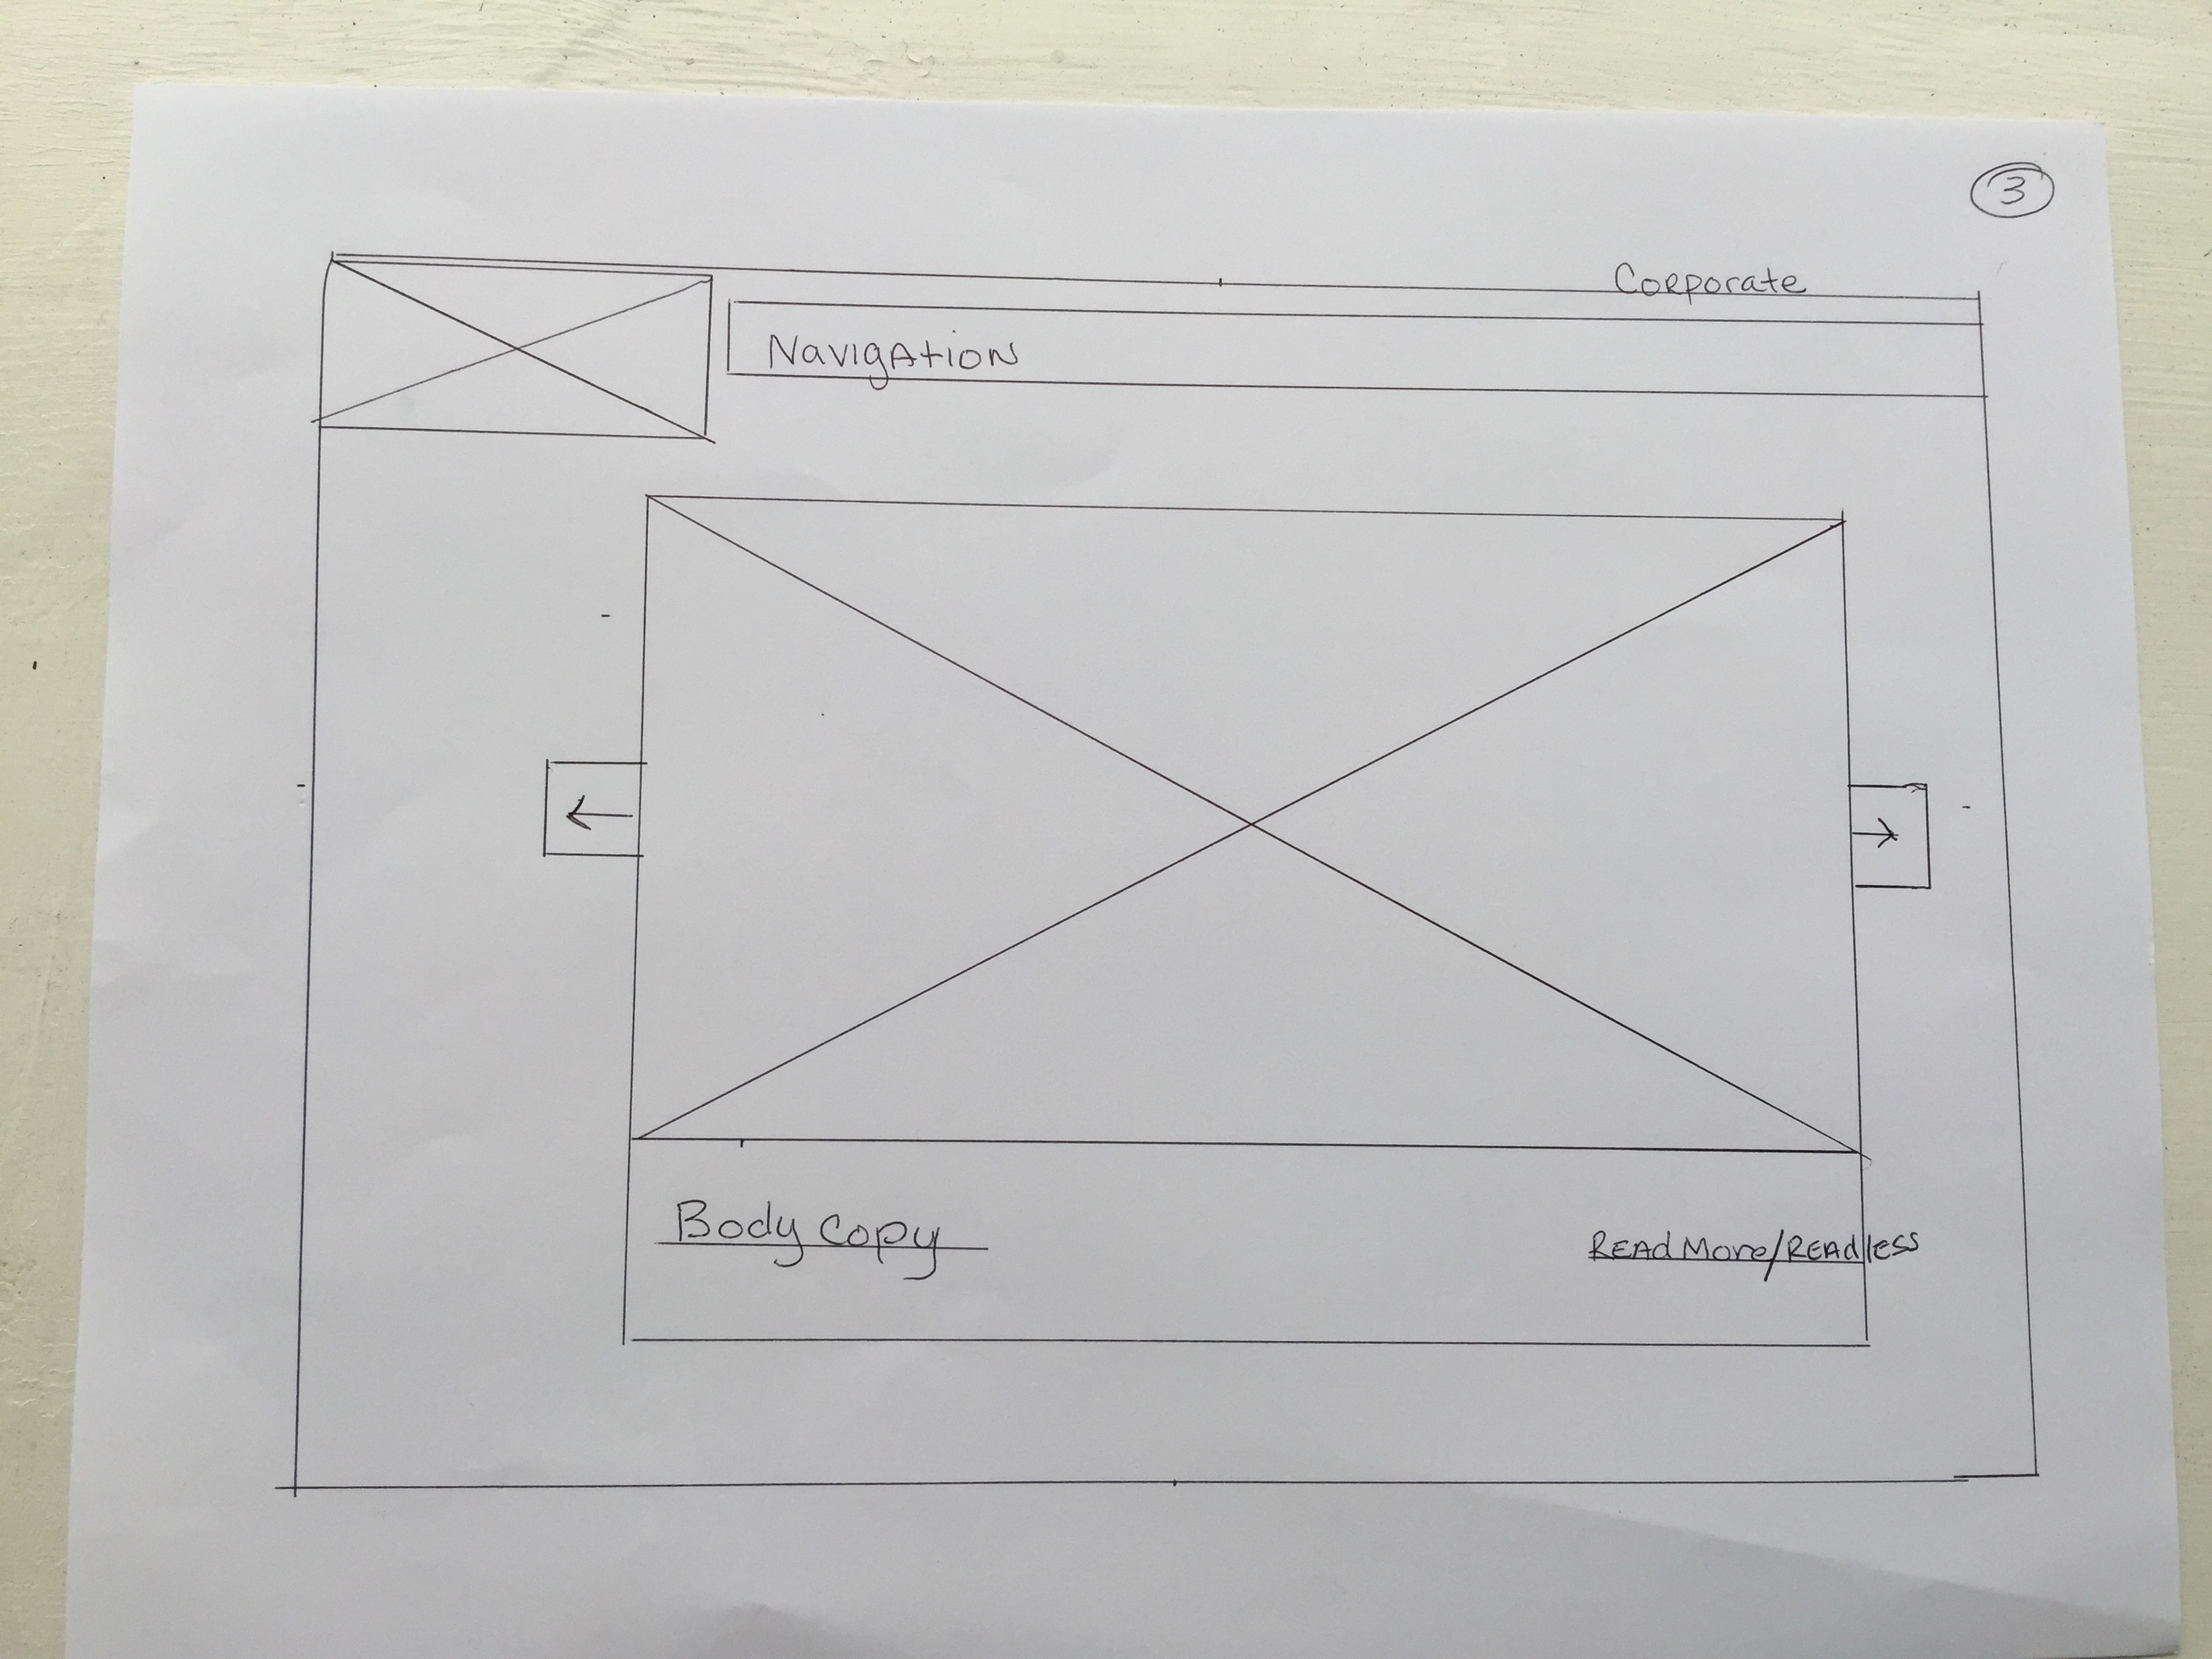 3
Corporate
Navigation
Body Copy
Read More/Readless